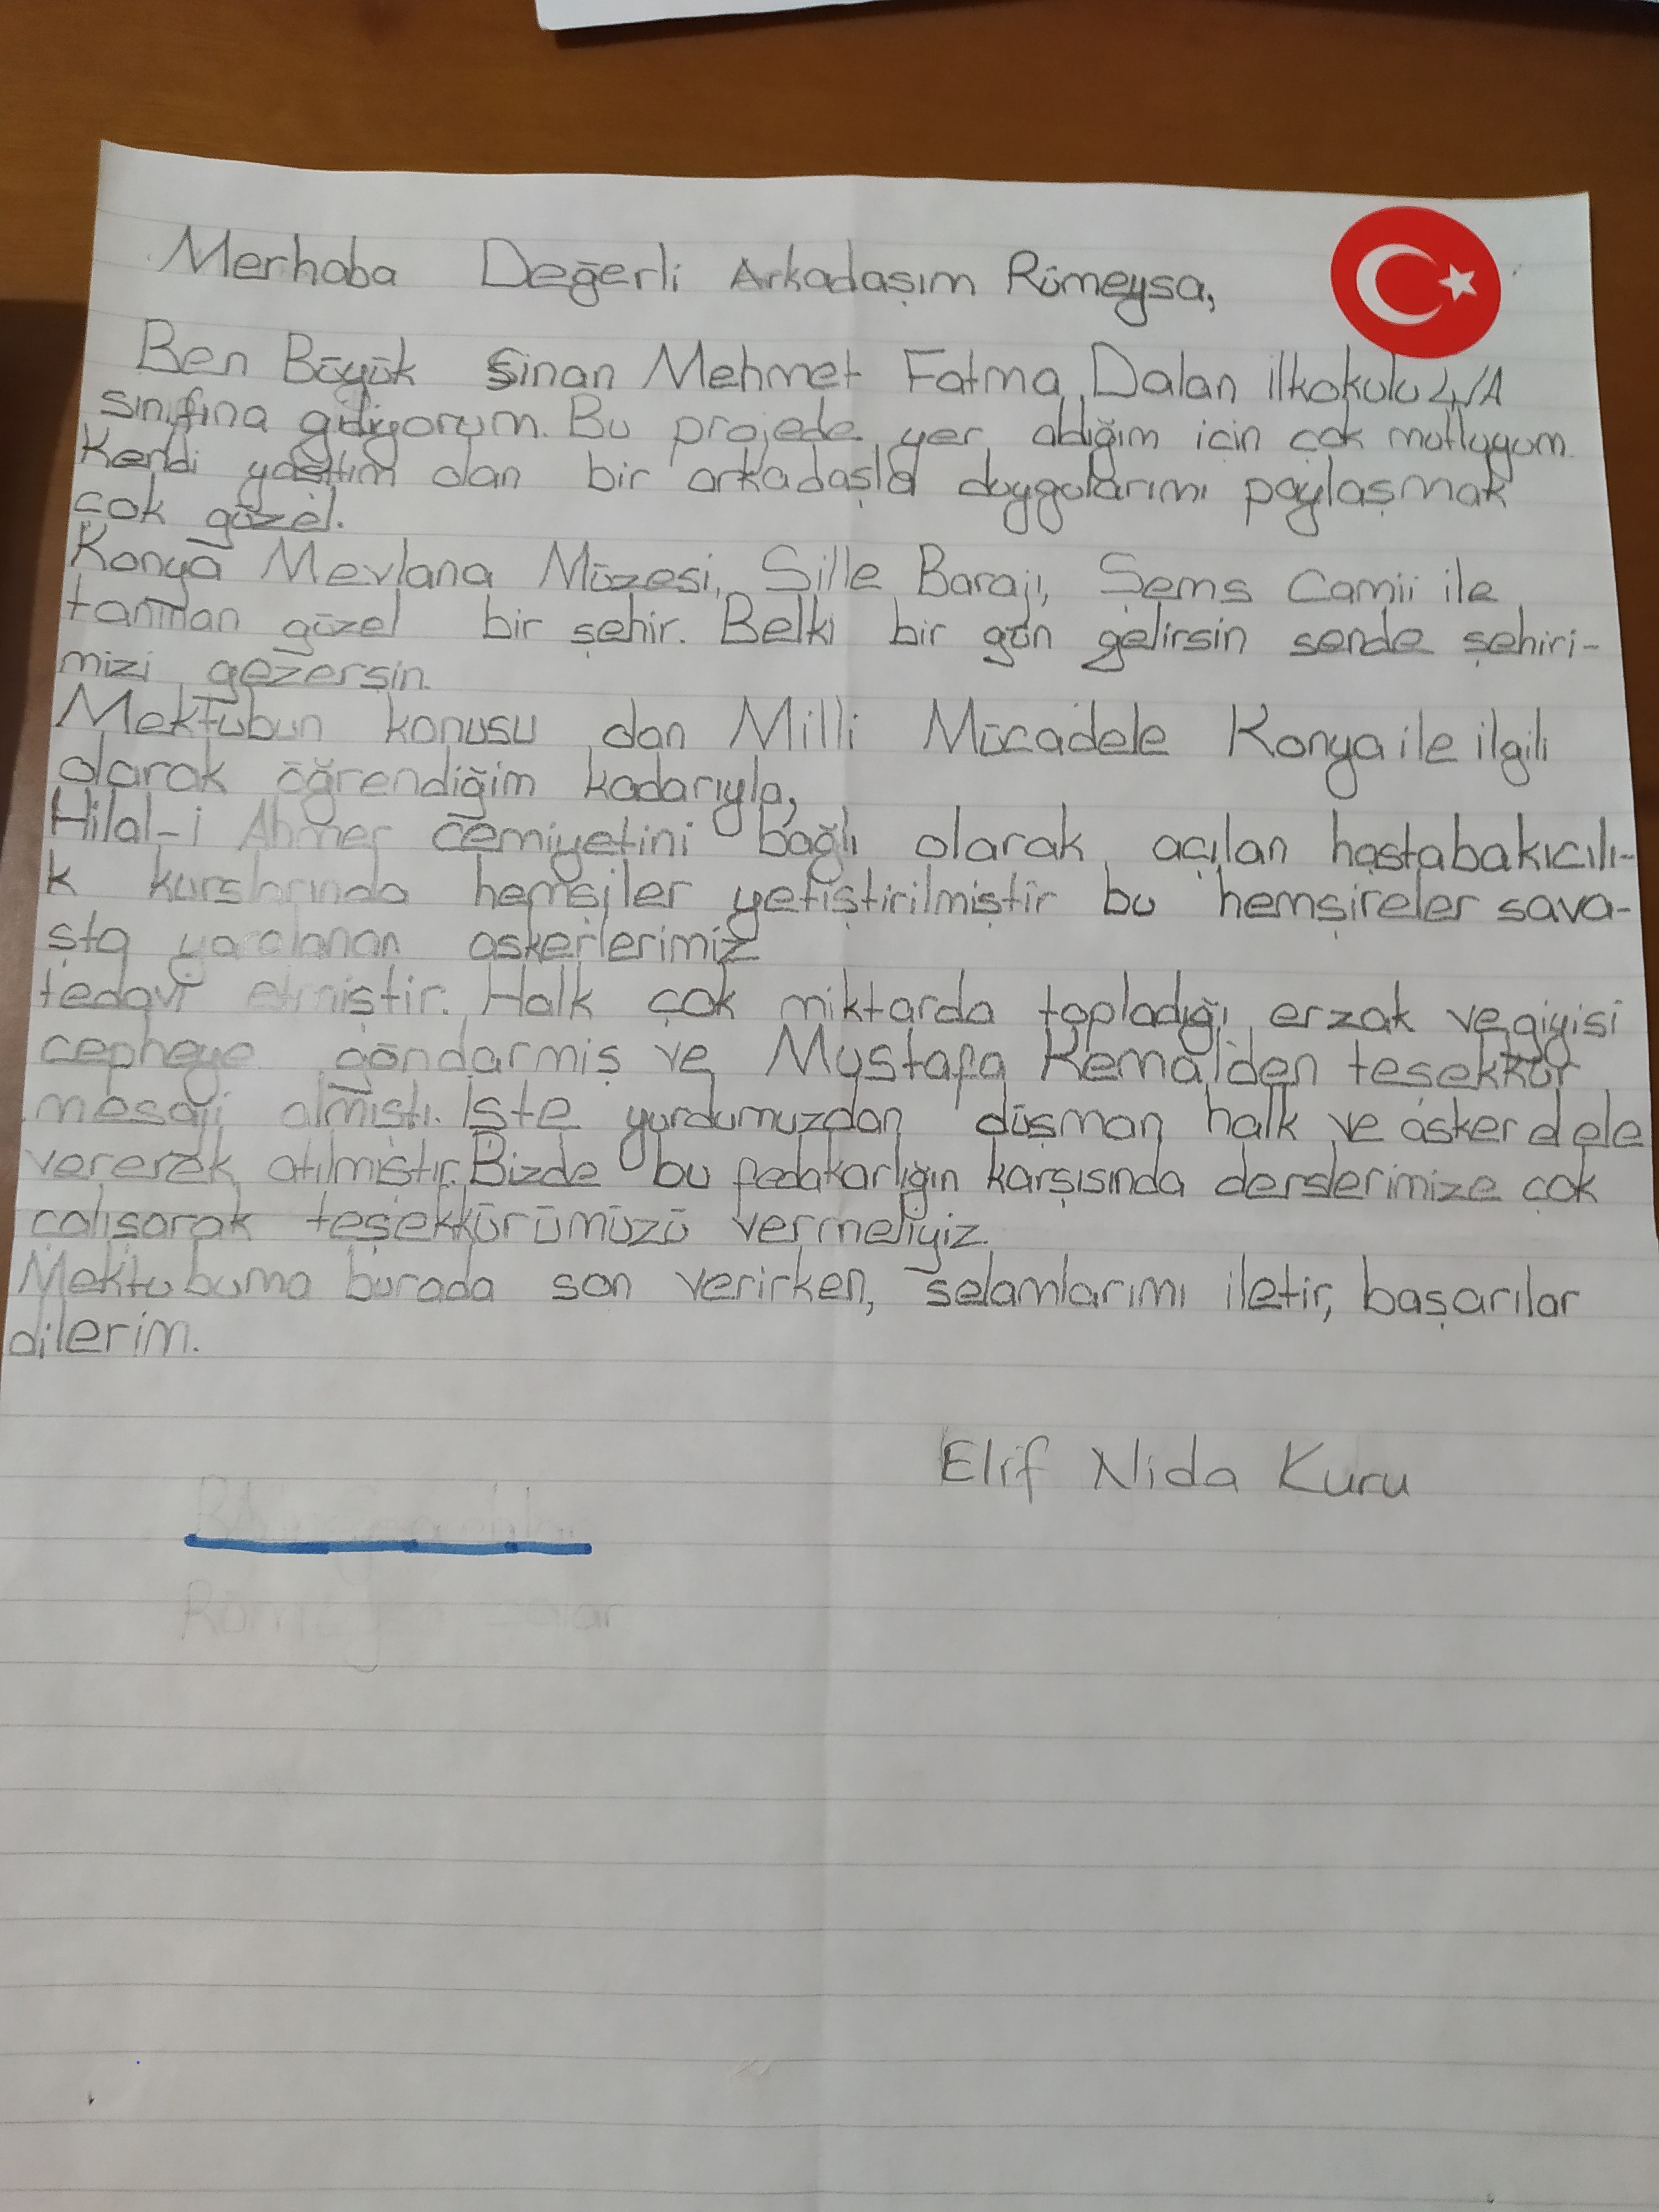 Merhaba Değerli Arkadaşım Rümeysa,
Ben Büyük Sinan Mehmet Fatma Dalan ilkokulu 4/A
sınıfına gidiyorum. Bu projede yer aldığım icin çok mutluyum.
Kendi yaşıtım olan bir arkadaşla duygularımı paylaşmak
çok güzel.
Konya Mevlana Müzesi, Sille Barajı, Şems Camii ile
tanınan güzel bir şehir. Belki bir gün gelirsin sende şehiri-
mizi gezersin.
Mektubun konusu olan Milli Mücadele Konya ile ilgili
olarak öğrendiğim kadarıyla,
Hilal-i Ahmer cemiyetini bağlı olarak açılan hastabakıcılı-
k kurslarında hemşiler yetiştirilmiştir bu hemşireler sava-
şta yaralanan askerlerimiz
tedavi etmiştir. Halk çok miktarda topladığı erzak ve giyisi
cepheye göndarmiş ve Mustafa Kemal'den teşekkür
mesajı almıştı. İşte yurdumuzdan düşman halk ve asker el ele
vererek atılmıştır. Bizde bu fedakarlığın karşısında derslerimize çok
çalışarak teşekkürümüzü vermeliyiz.
Mektubuma burada son verirken, selamlarımı iletir, başarılar
dilerim.
Elif Nida Kuru